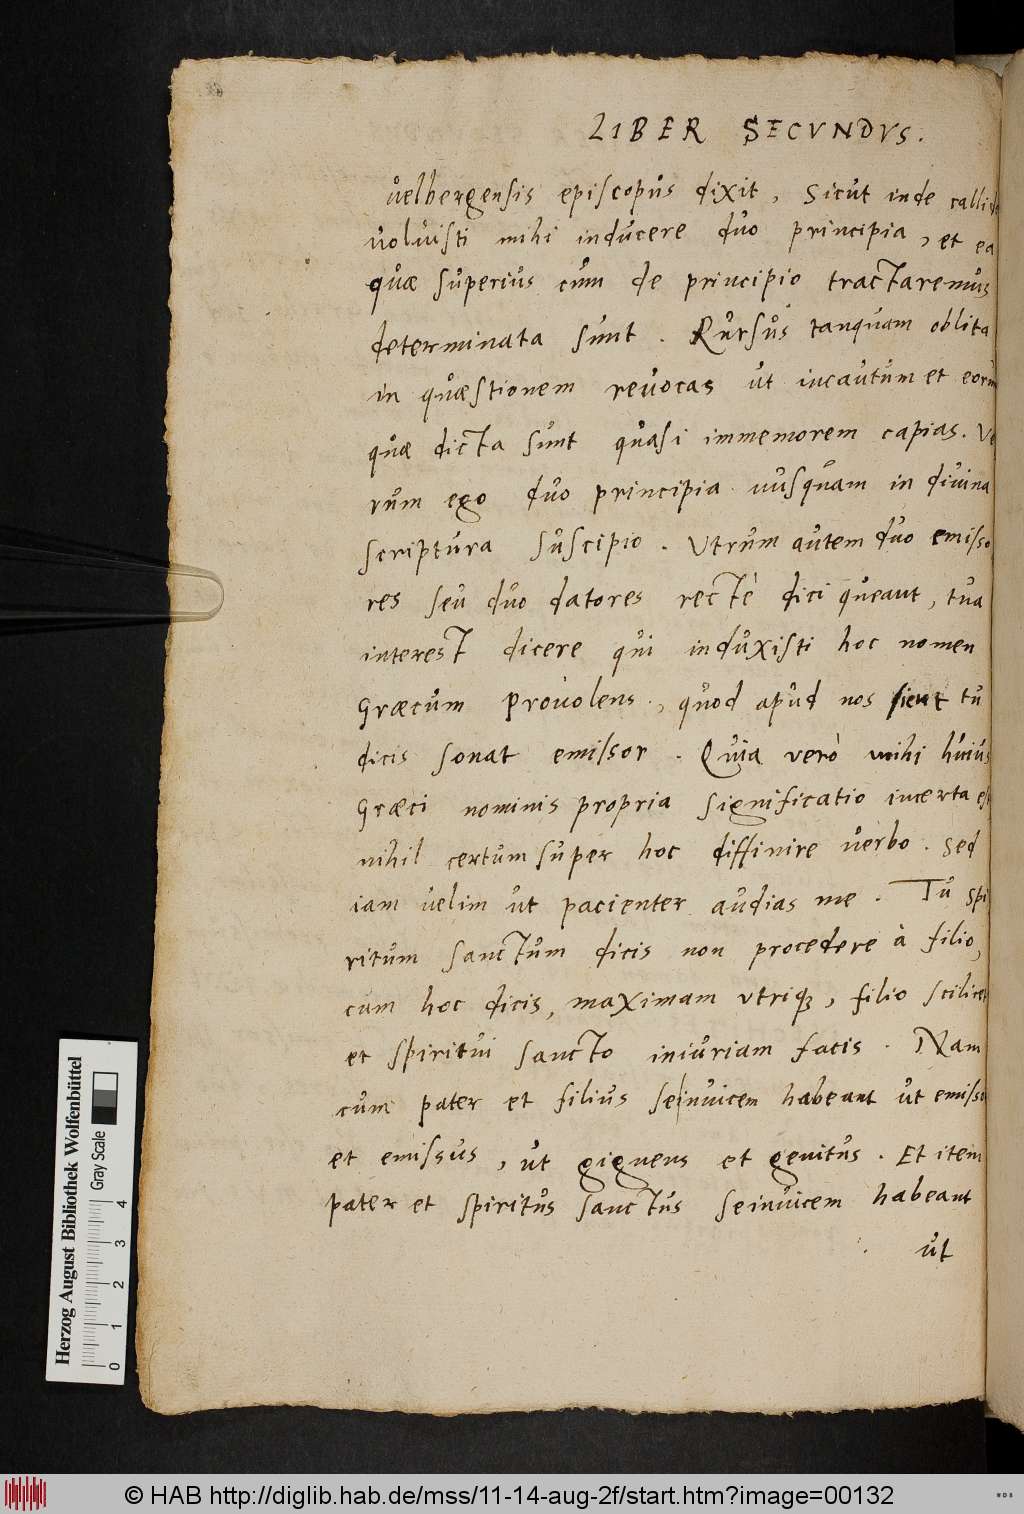 LIBER SECVNDVS.
velbergensis episcopus dixit, Sicut inde callide
voluisti mihi inducere duo principia, et ea
quæ superius cum de principio tractaremus
determinata sunt. Rursus tanquam oblita
in quæstionem revocas ut incautum et eorum
quæ dicta sunt quasi immemorem capias. Ve
rum ego duo principia nusquam in divina
scriptura suscipio. Vtrum autem duo emisso
res seu duo datores rectè dici queant, tua
interest dicere qui induxisti hoc nomen
Græcum Provolens, quod apud nos sicut tu
dicis sonat emissor. Quia verò mihi huius
Græci nominis propria significatio incerta est
nihil certum super hoc diffinire verbo. Sed
iam velim ut pacienter audias me. Tu spi
ritum sanctum dicis non procedere à filio,
cum hoc dicis, maximam vtriq;, filio scilicet
et spiritui sancto iniuriam facis. Nam
cum pater et filius se|invicem habeant ut emissor
et emissus, ut gignens et genitus. Et item
pater et spiritus sanctus seinvicem habeant
ut
Herzog August Bibliothek Wolfenbüttel
Gray Scale
0 1 2 3 4
© HAB http://diglib.hab.de/mss/11-14-aug-2f/start.htm?image=00132